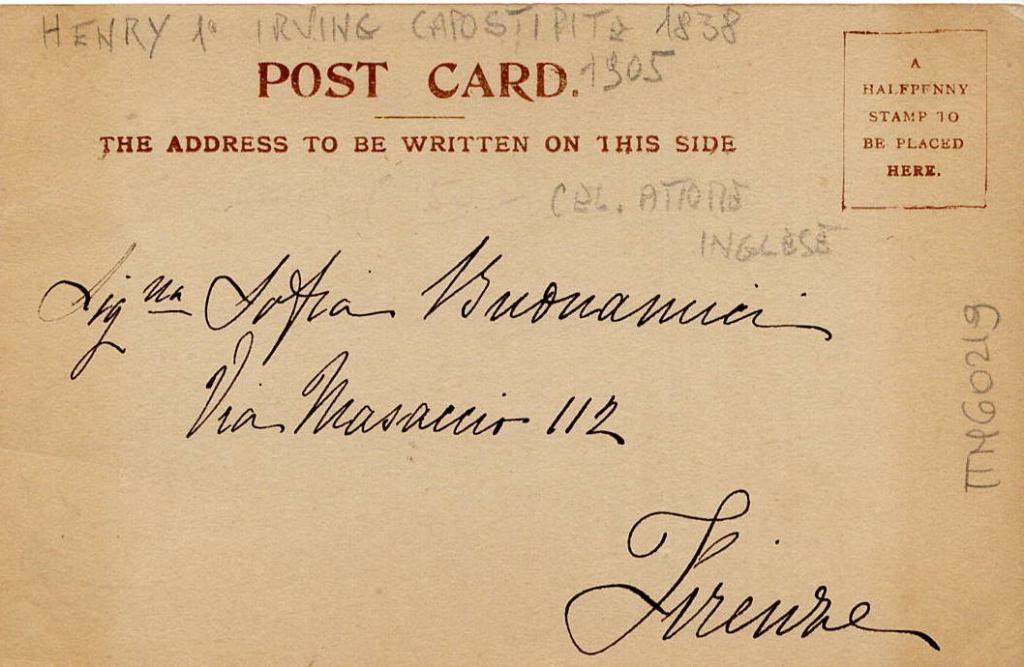 HENRY 1° IRVING CAPOSTIPITE 1838
1905
POST CARD.
THE ADDRESS TO BE WRITTEN ON THIS SIDE
A
HALFPENNY
STAMP TO
BE PLACED
HERE.
CEL. ATTORE
INGLESE
Sig na Sofia Buonamici
Via Masaccio 112
Firenze
TTM60219